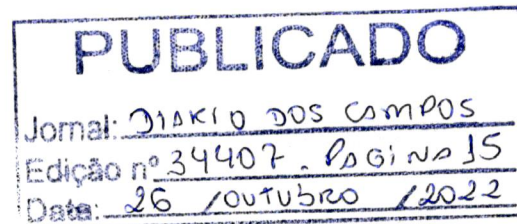 PUBLICADO
Jornal: DIARIO DOS CAMPOS
Edição nº 34407 . PAGINA 15
Data: 26 / OUTUBRO / 2022